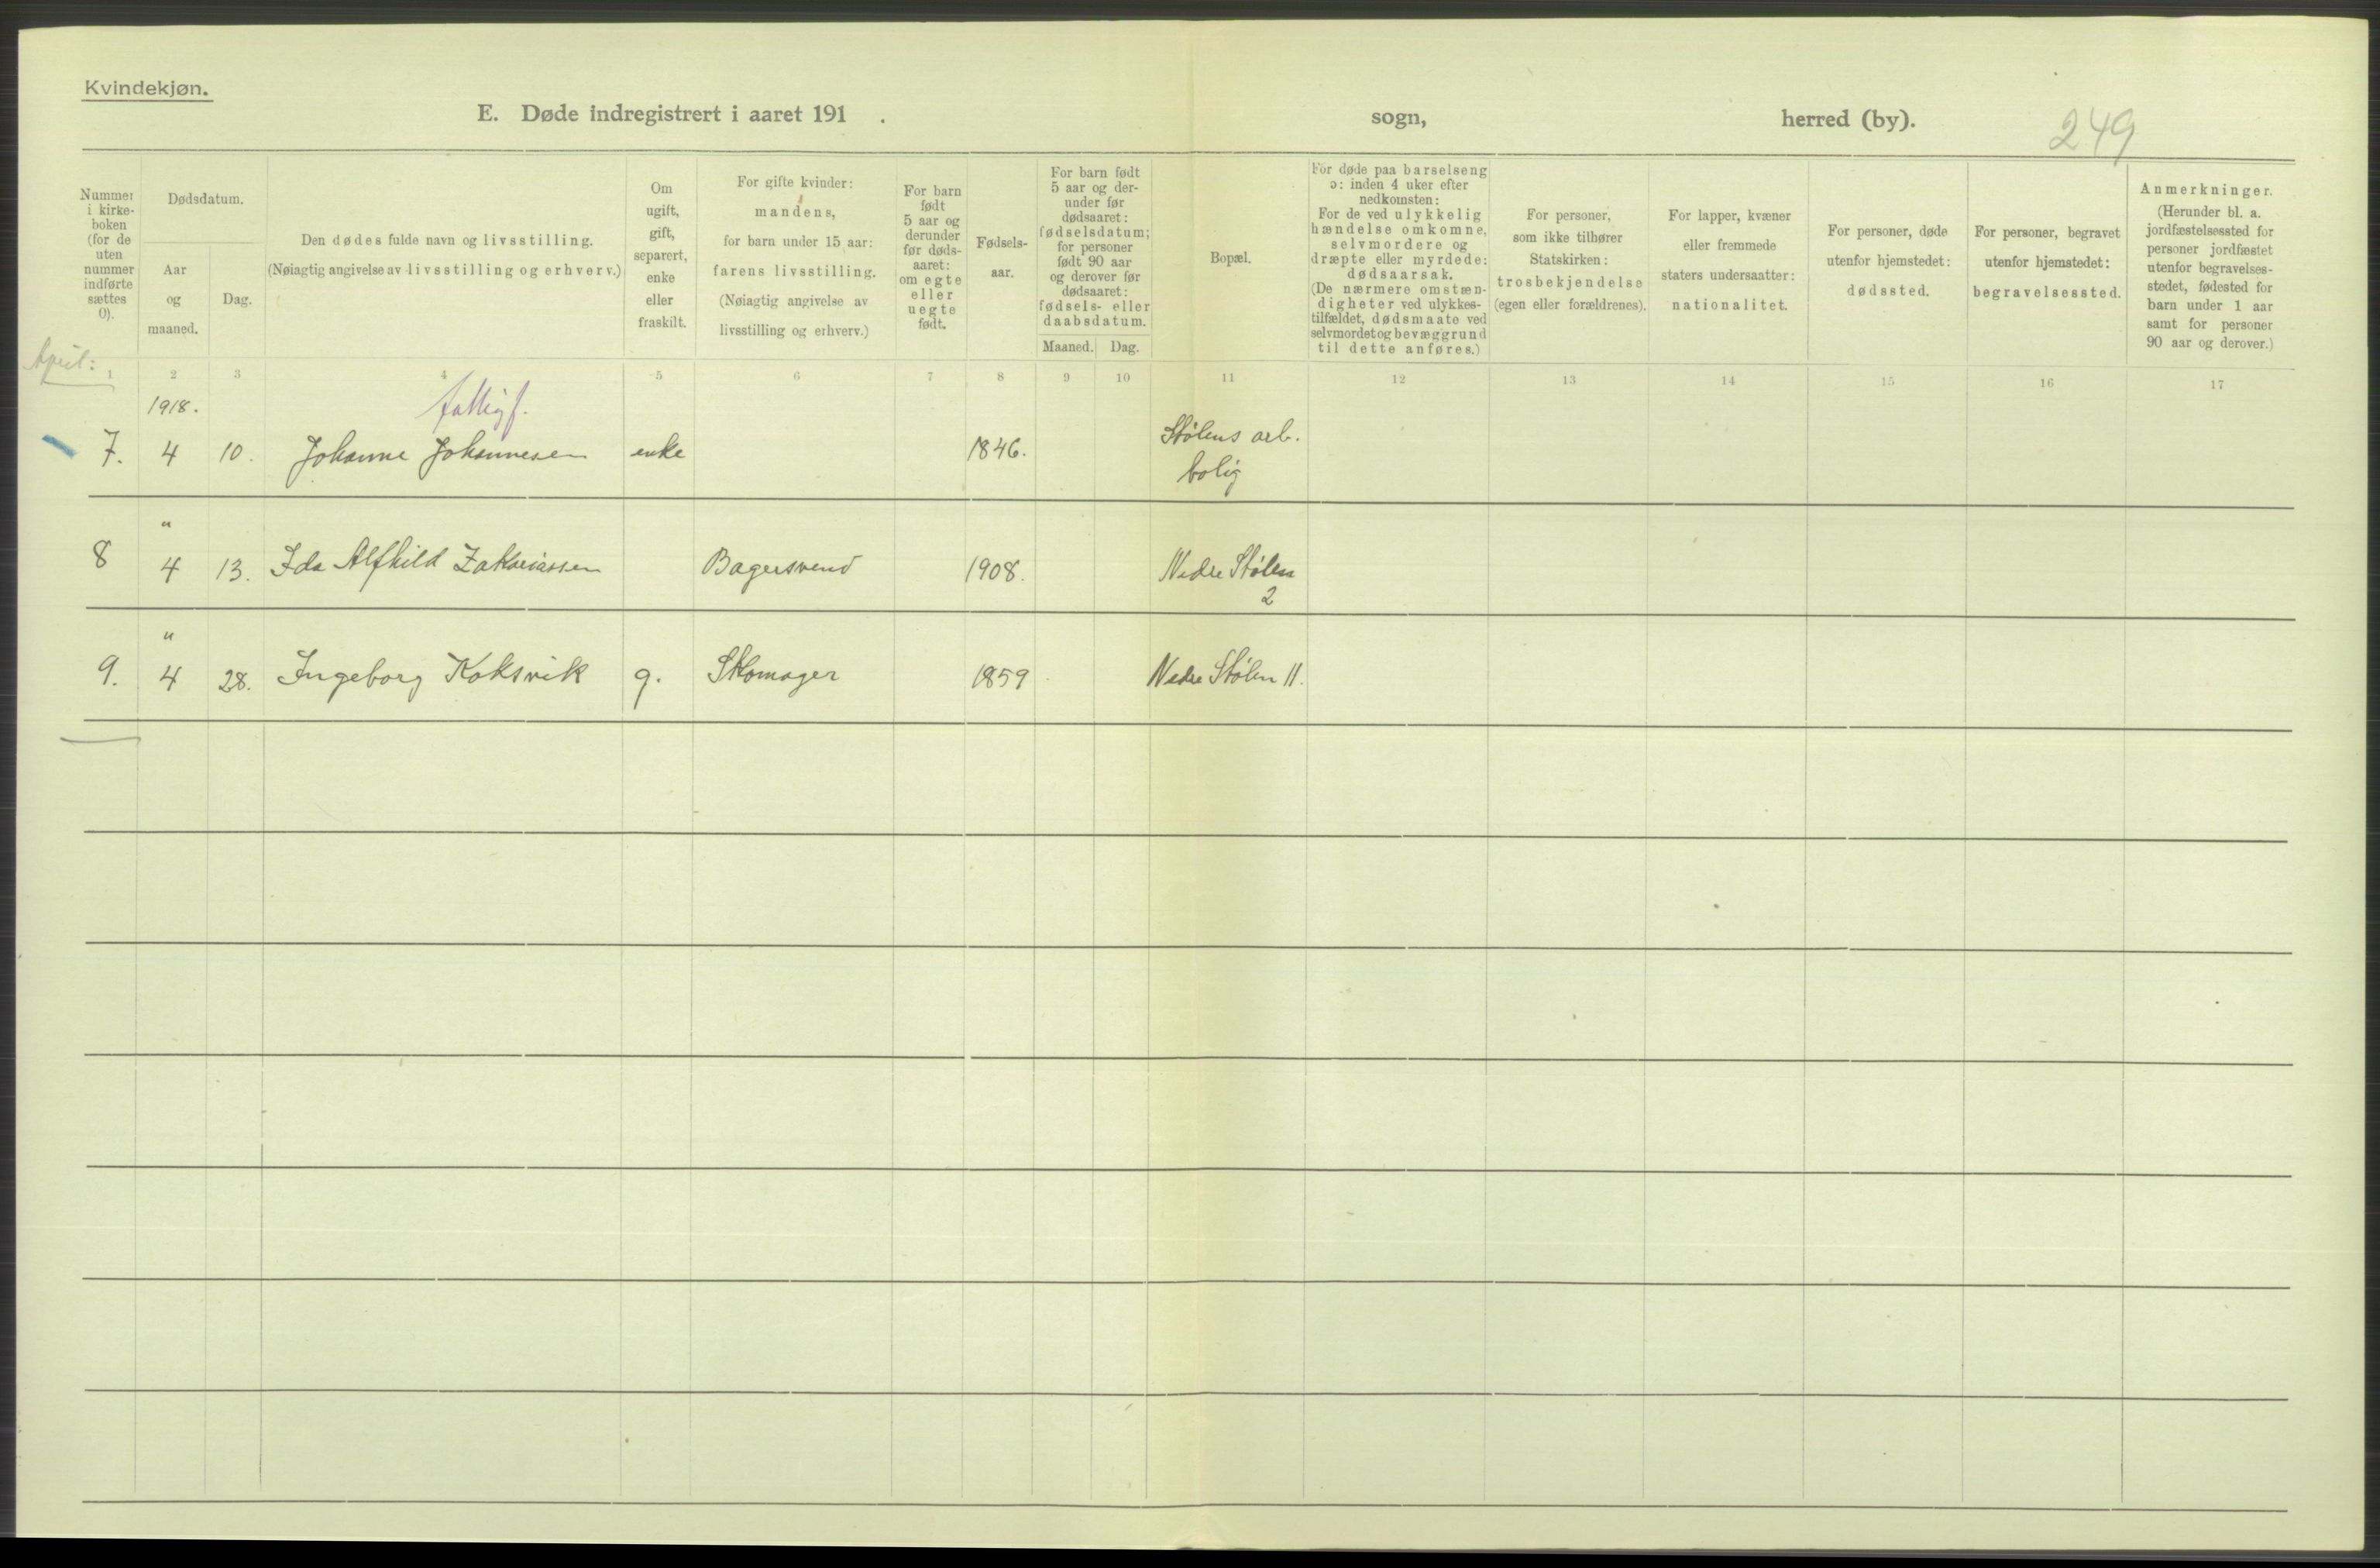 Kvindekjøn.
E. Døde indregistrert i aaret 191 .
sogn,
herred (by).
249
Nummer
i kirke-
boken
(for de
uten
nummer
indførte
sættes
0).
Dødsdatum.
Aar
og
maaned.
Dag.
Den dødes fulde navn og livsstilling.
(Nøiagtig angivelse av livsstilling og erhverv.)
Om
ugift,
gift,
separert,
enke
eller
fraskilt.
For gifte kvinder:
mandens,
for barn under 15 aar:
farens livsstilling.
(Nøiagtig angivelse av
livsstilling og erhverv.)
For barn
født
5 aar og
derunder
før døds-
aaret:
om egte
eller
uegte
født.
Fødsels-
aar.
For barn født
5 aar og der-
under før
dødsaaret:
fødselsdatum;
for personer
født 90 aar
og derover før
dødsaaret:
fødsels- eller
daabsdatum.
Maaned. Dag.
Bopæl.
For døde paa barselseng
ɔ: inden 4 uker efter
nedkomsten:
For de ved ulykkelig
hændelse omkomne,
selvmordere og
dræpte eller myrdede:
dødsaarsak.
(De nærmere omstæn-
digheter ved ulykkes-
tilfældet, dødsmaate ved
selvmordet og bevæggrund
til dette anføres.)
For personer,
som ikke tilhører
Statskirken:
trosbekjendelse
(egen eller forældrenes).
For lapper, kvæner
eller fremmede
staters undersaatter:
nationalitet.
For personer, døde
utenfor hjemstedet:
dødssted.
For personer, begravet
utenfor hjemstedet:
begravelsessted.
Anmerkninger.
(Herunder bl. a.
jordfæstelsessted for
personer jordfæstet
utenfor begravelses-
stedet, fødested for
barn under 1 aar
samt for personer
90 aar og derover.)
April:
1 2 3 4 5 6 7 8 9 10 11 12 13 14 15 16 17
1918.
fattigf.
7. 4 10. Johanne Johannesen enke 1846. Stølens arb.
bolig
"
8 4 13. Ida Alfhild Zakariassen Bagersvend 1908. Nedre Stølen
2
"
9. 4 28. Ingeborg Koksvik g. Skomager 1859 Nedre Stølen 11.